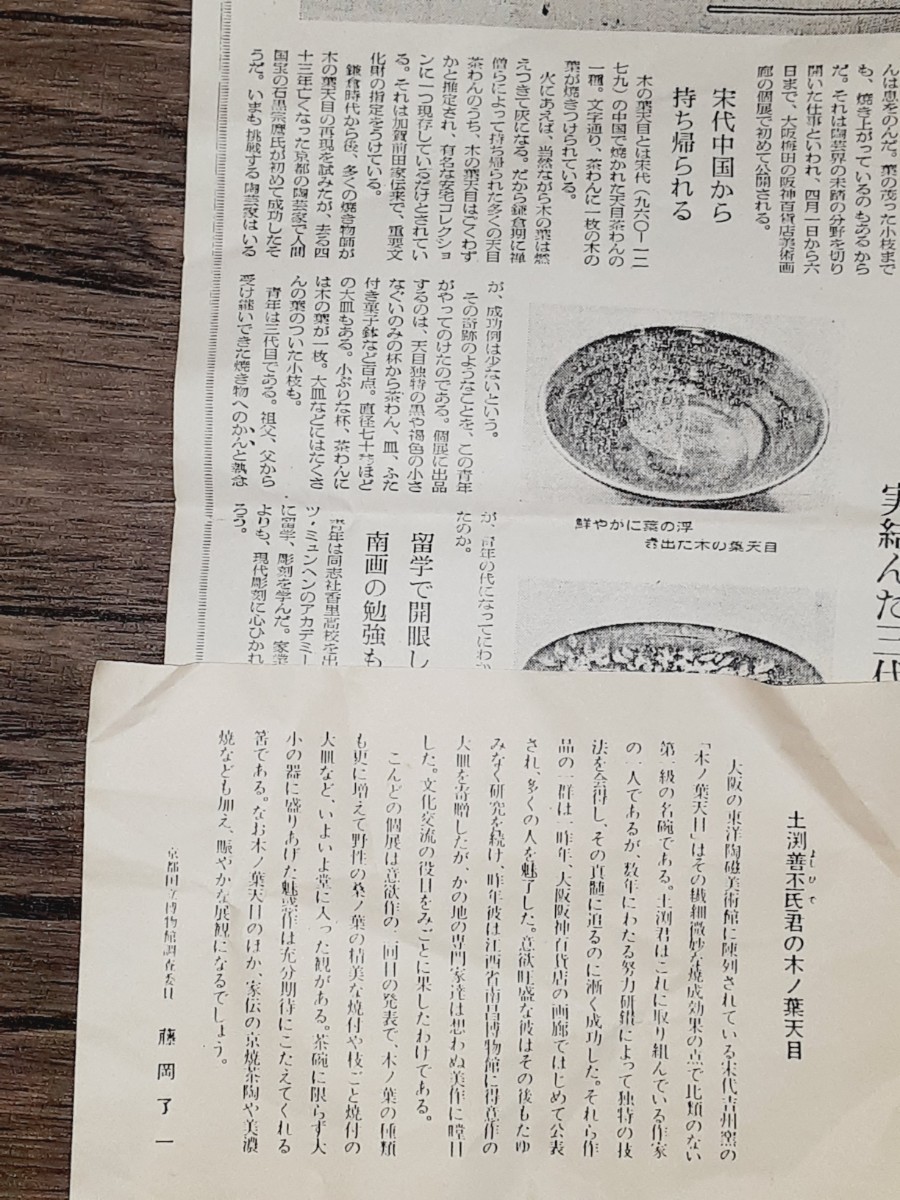 んは息をのんだ。葉の茂った小枝まで
も、焼き上がっているのもあるから
だ。それは陶芸界の未踏の分野を切り
開いた仕事といわれ、四月一日から六
日まで、大阪梅田の阪神百貨店美術画
廊の個展で初めて公開される。
宋代中国から
持ち帰られる
木の葉天目とは宋代(九六〇—一二
七九)の中国で焼かれた天目茶わんの
一種。文字通り、茶わんに一枚の木の
葉が焼きつけられている。
火にあえば、当然ながら木の葉は燃
えつきて灰になる。だから鎌倉期に禅
僧らによって持ち帰られた多くの天目
茶わんのうち、木の葉天目はごくわず
かと推定され、有名な安宅コレクショ
ンに一つ現存しているだけとされてい
る。それは加賀前田家伝来で、重要文
化財の指定をうけている。
鎌倉時代から後、多くの焼き物師が
木の葉天目の再現を試みたが、去る四
十三年亡くなった京都の陶芸家で人間
国宝の石黒宗麿氏が初めて成功したそ
うだ。いまも挑戦する陶芸家はいる
が、成功例は少ないという。
その奇跡のようなことを、この青年
がやってのけたのである。個展に出品
するのは、天目独特の黒や褐色の小さ
なぐいのみの杯から茶わん、皿、ふた
付き菓子鉢など百点。直径七十㌢ほど
の大皿もある。小ぶりな杯、茶わんに
は木の葉が一枚。大皿などにはたくさ
んの葉のついた小枝も。
青年は三代目である。祖父、父から
受け継いできた焼き物へのかんと執念
が、青年の代になってにわか
たのか。
留学で開眼し
南画の勉強も
青年は同志社香里高校を出
ツ・ミュンヘンのアカデミー
に留学、彫刻を学んだ。家業
よりも、現代彫刻に心ひかれ
ろう。
鮮やかに葉の浮
き出た木の葉天目
実結んだ三代
土渕善丕民君の木ノ葉天目
よしひで
大阪の東洋陶磁美術館に陳列されている宋代吉州窯の
「木ノ葉天目」はその繊細微妙な焼成効果の点で比類のない
第一級の名碗である。土渕君はこれに取り組んでいる作家
の一人であるが、数年にわたる努力研鑚によって独特の技
法を会得し、その真髄に迫るのに漸く成功した。それら作
品の一群は、昨年、大阪阪神百貨店の画廊ではじめて公表
され、多くの人を魅了した。意欲旺盛な彼はその後もたゆ
みなく研究を続け、昨年彼は江西省南昌博物館に得意作の
大皿を寄贈したが、かの地の専門家達は想わぬ美作に瞠目
した。文化交流の役目をみごとに果したわけである。
こんどの個展は意欲作の二回目の発表で、木ノ葉の種類
も更に増えて野性の桑ノ葉の精美な焼付や枝ごと焼付の
大皿など、いよいよ堂に入った観がある。茶碗に限らず大
小の器に盛りあげた魅惑作は充分期待にこたえてくれる
筈である。なお木ノ葉天目のほか、家伝の京焼茶陶や美濃
焼なども加え、賑やかな展観になるでしょう。
京都国立博物館調査委員 藤岡了一